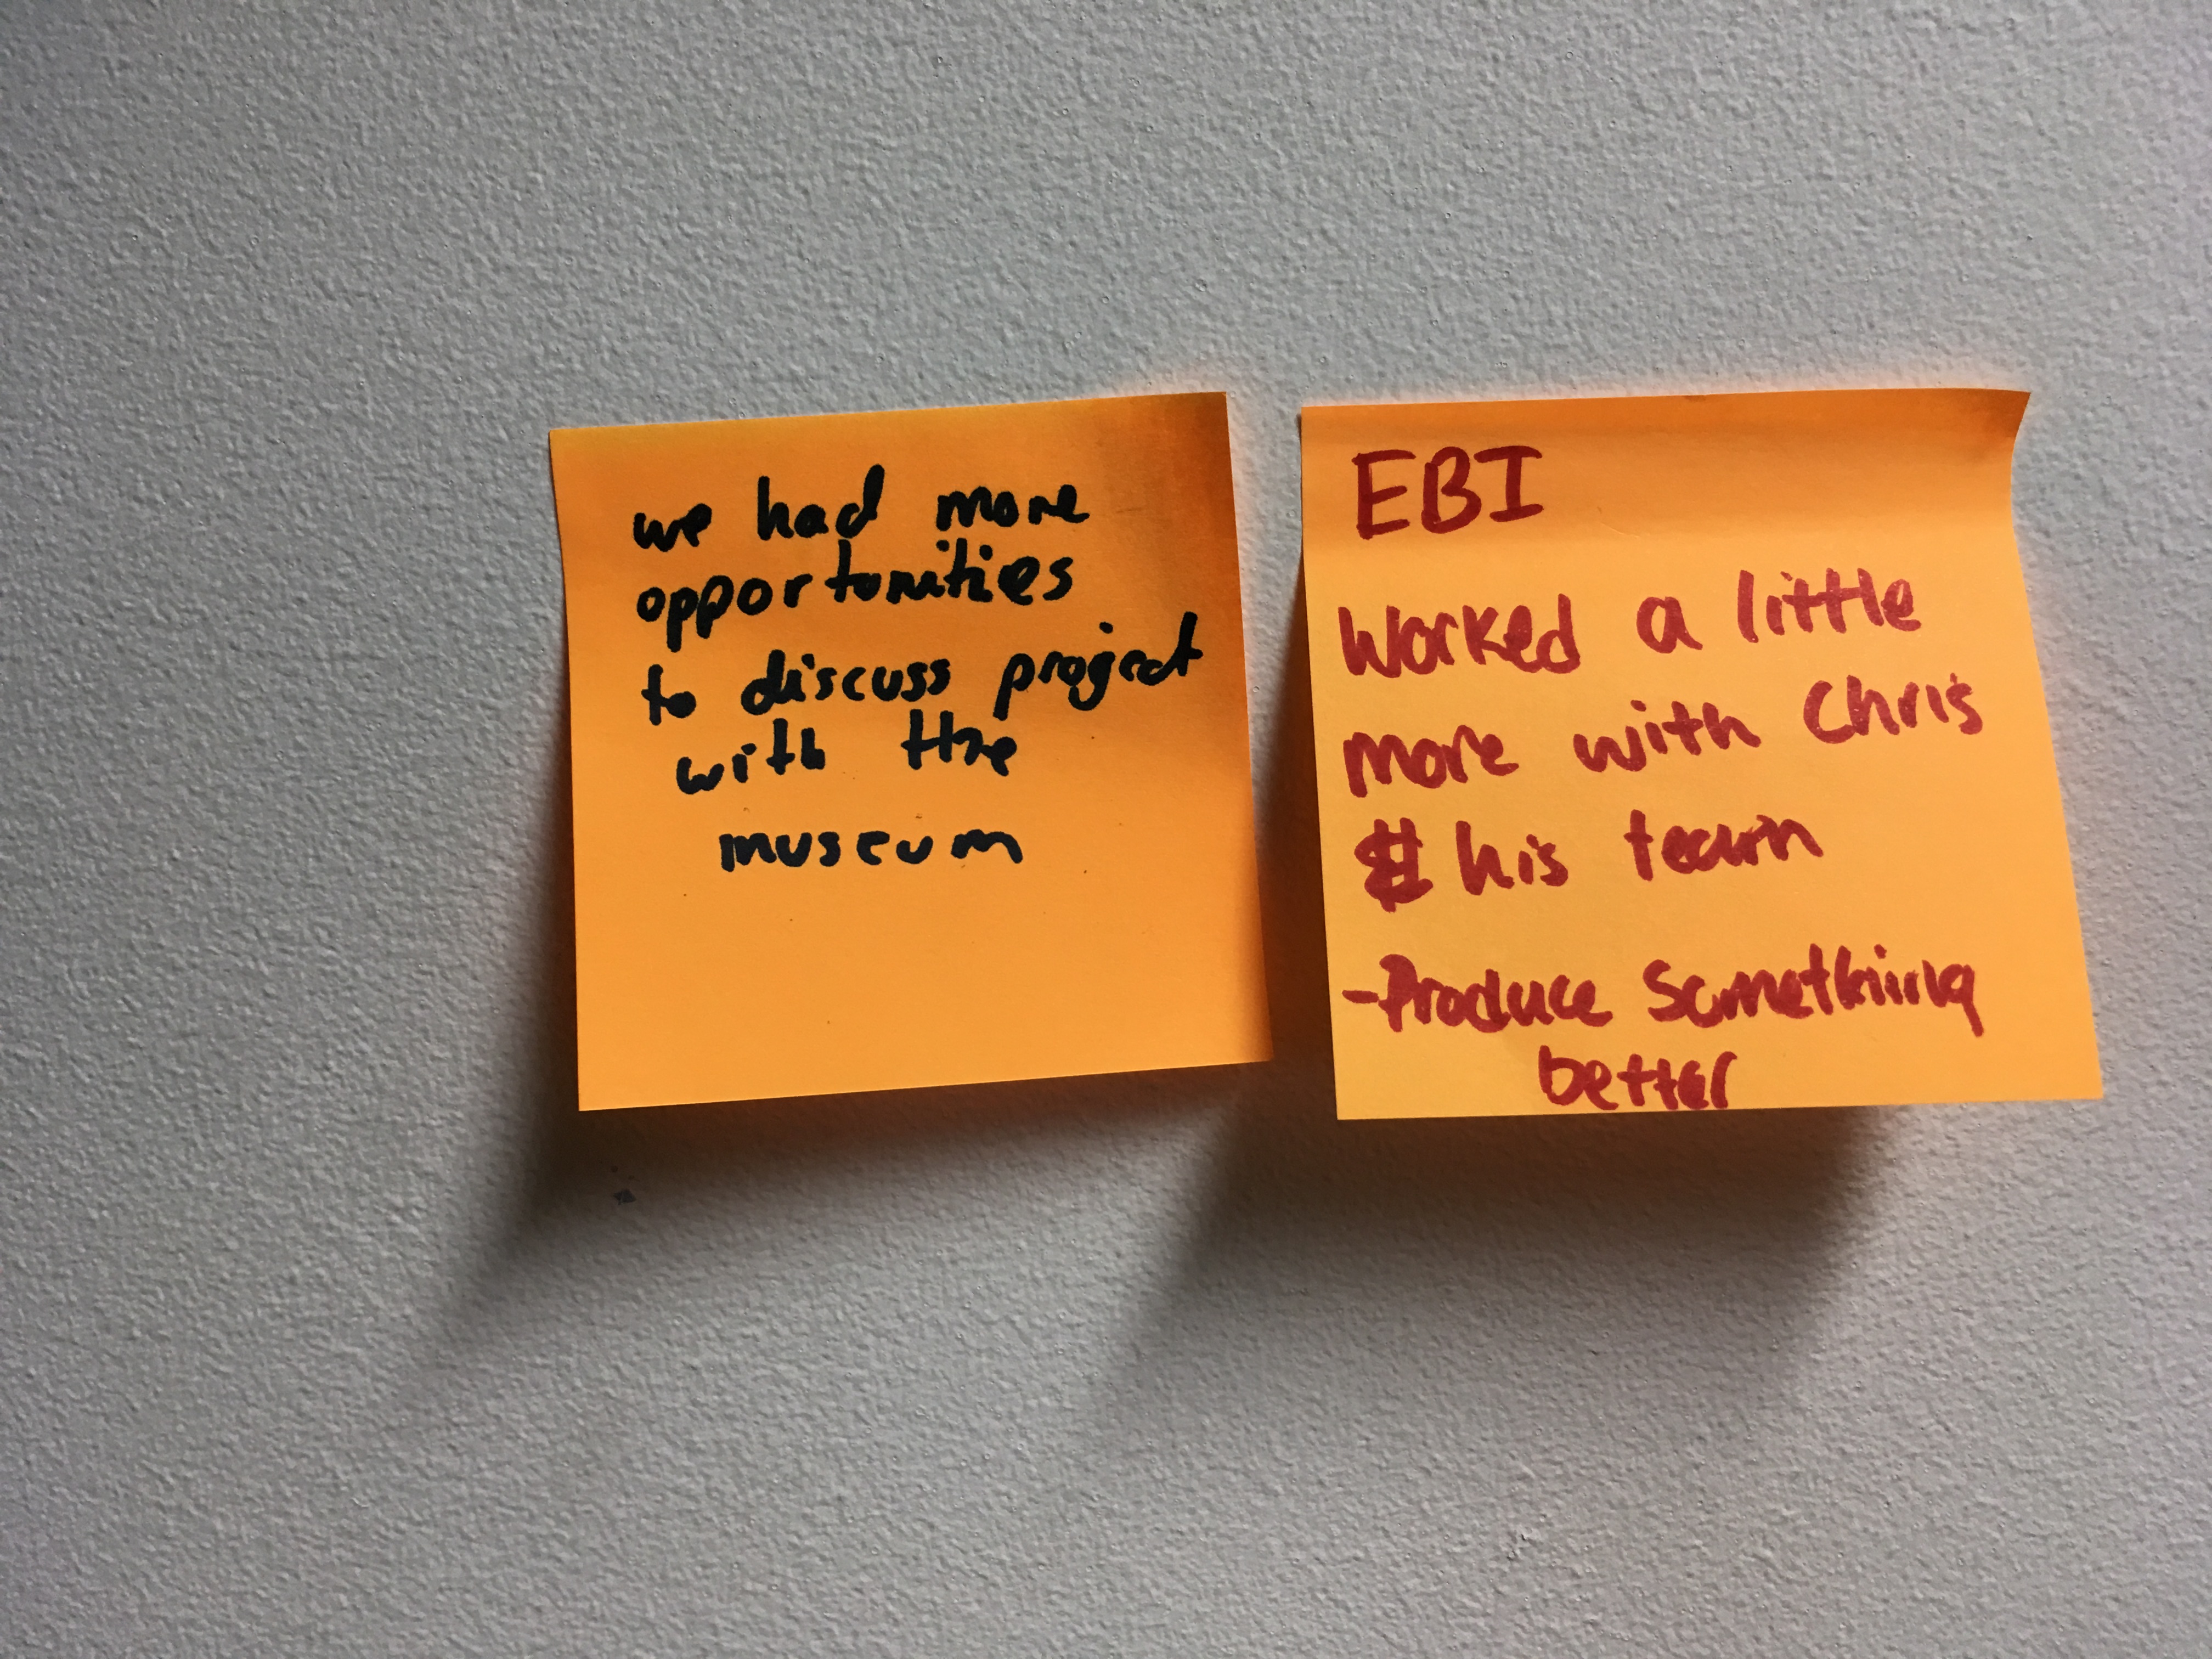 we had more
opportunities
to discuss project
with the
museum
EBI
Worked a little
more with Chris
& his team
-Produce something
better